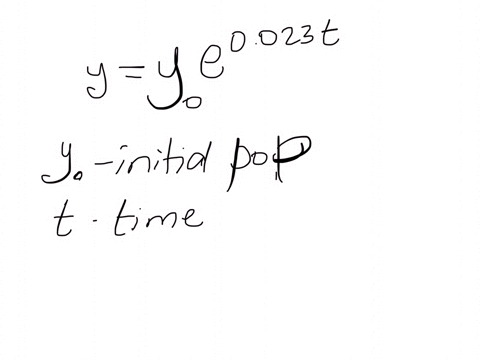 y = y₀ e^0.023t
y₀ - initial pop
t - time